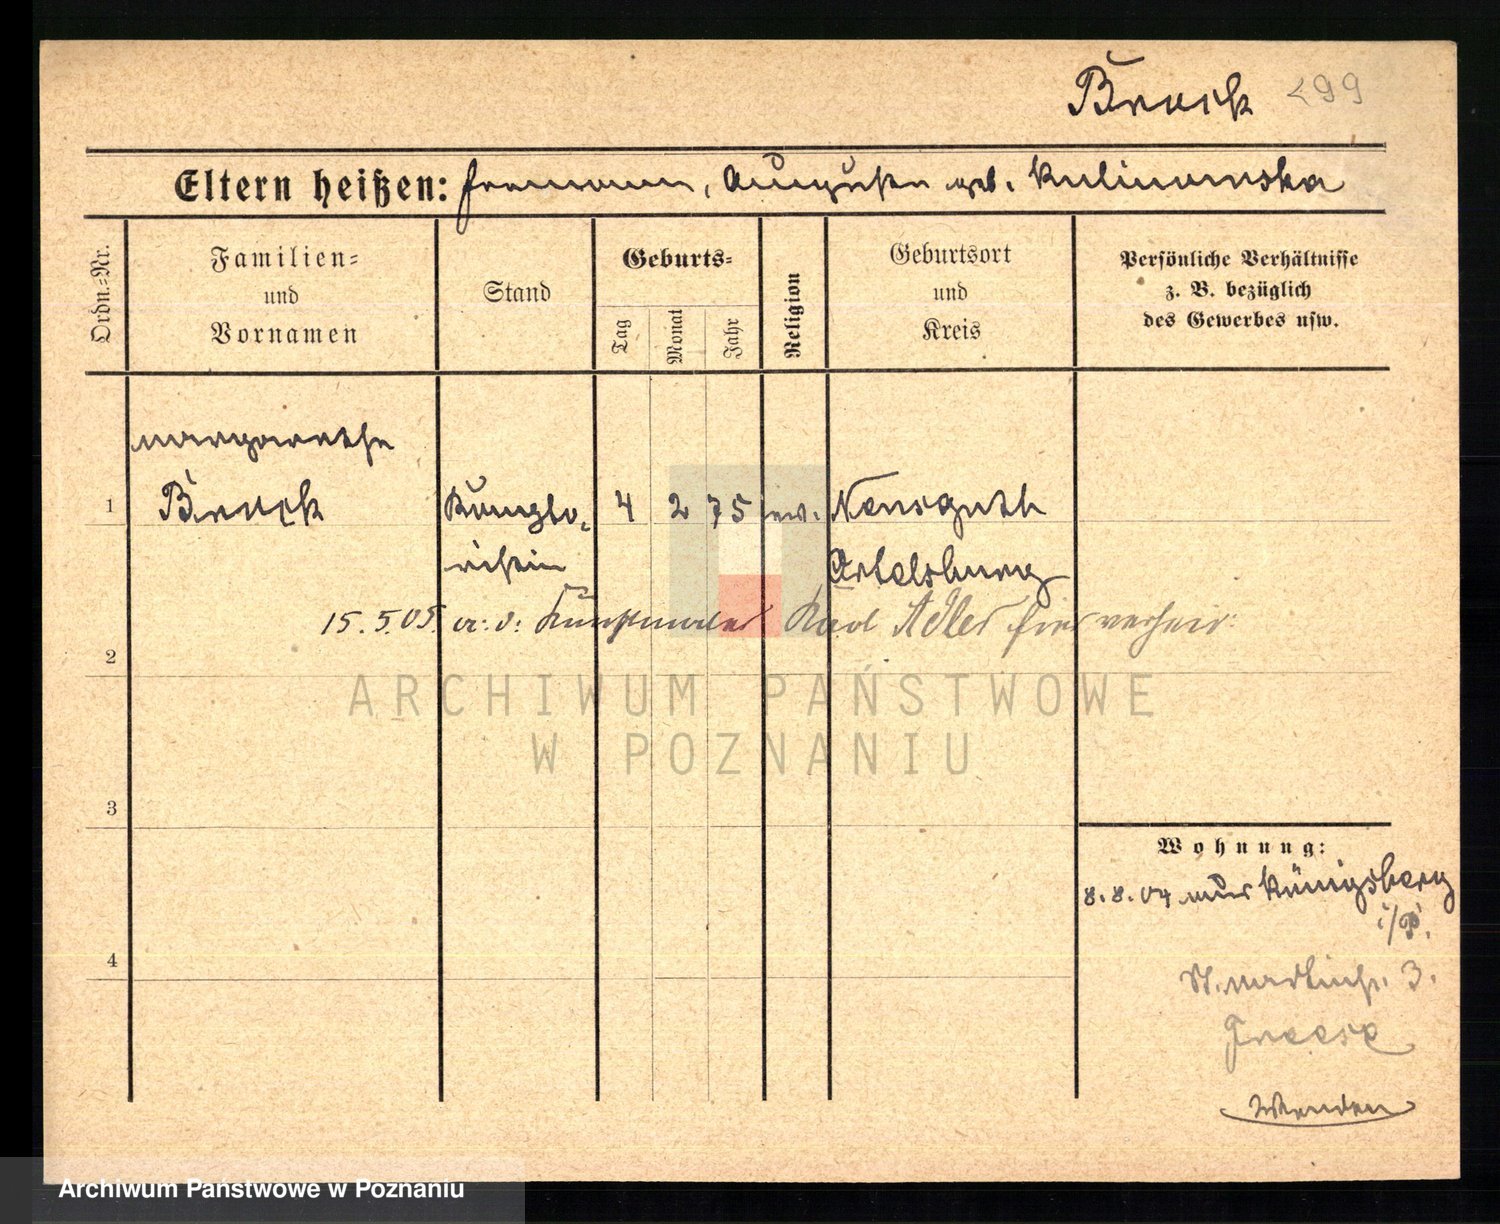 Brock 299
Eltern heißen: Hermann, Auguste geb. Kulinowska
Ordn.-Nr.
Familien=
und
Vornamen
Stand
Geburts=
Tag
Monat
Jahr
Religion
Geburtsort
und
Kreis
Persönliche Verhältnisse
z. B. bezüglich
des Gewerbes usw.
Margarethe
1 Brock 4 2 75 ev.
Ortelsburg
15.5.05. a: d: Kunstmaler Karl Adler hier verheir:
2
ARCHIWUM PAŃSTWOWE
W POZNANIU
3
Wohnung:
8.8.04 aus Königsberg
i/P.
St. Martinstr. 3.
4
Wenden
Archiwum Państwowe w Poznaniu